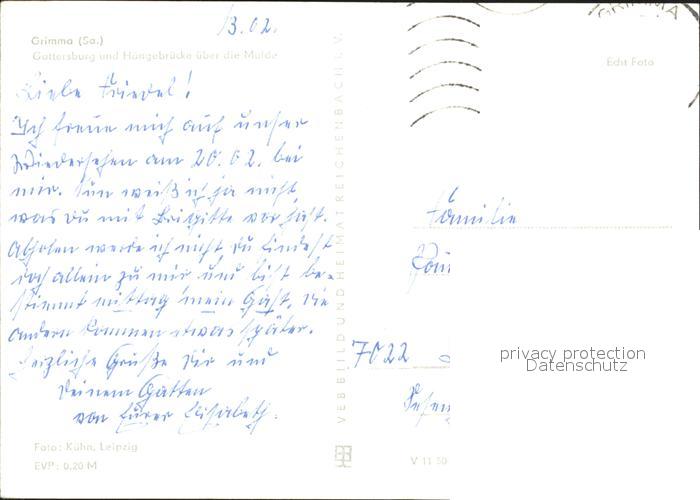 13.02.
GRIMMA
Grimma (Sa.)
Gattersburg und Hängebrücke über die Mulde
Echt Foto
Liebe Friedel!
Ich freue mich auf unser
Wiedersehen am 20.02. bei
mir. Nun weiß ich ja nicht,
was Du mit Brigitte vor hast.
Abholen werde ich nicht, Du findest
doch allein zu mir und bist be-
stimmt mittag mein Gast. Die
andern kommen etwas später.
Herzliche Grüße Dir und
Deinem Gatten
von Eurer Elisabeth.
Familie
7022
privacy protection
Datenschutz
VEB BILD UND HEIMAT REICHENBACH I. V.
Foto: Kühn, Leipzig
EVP: 0,20 M
V 11 50